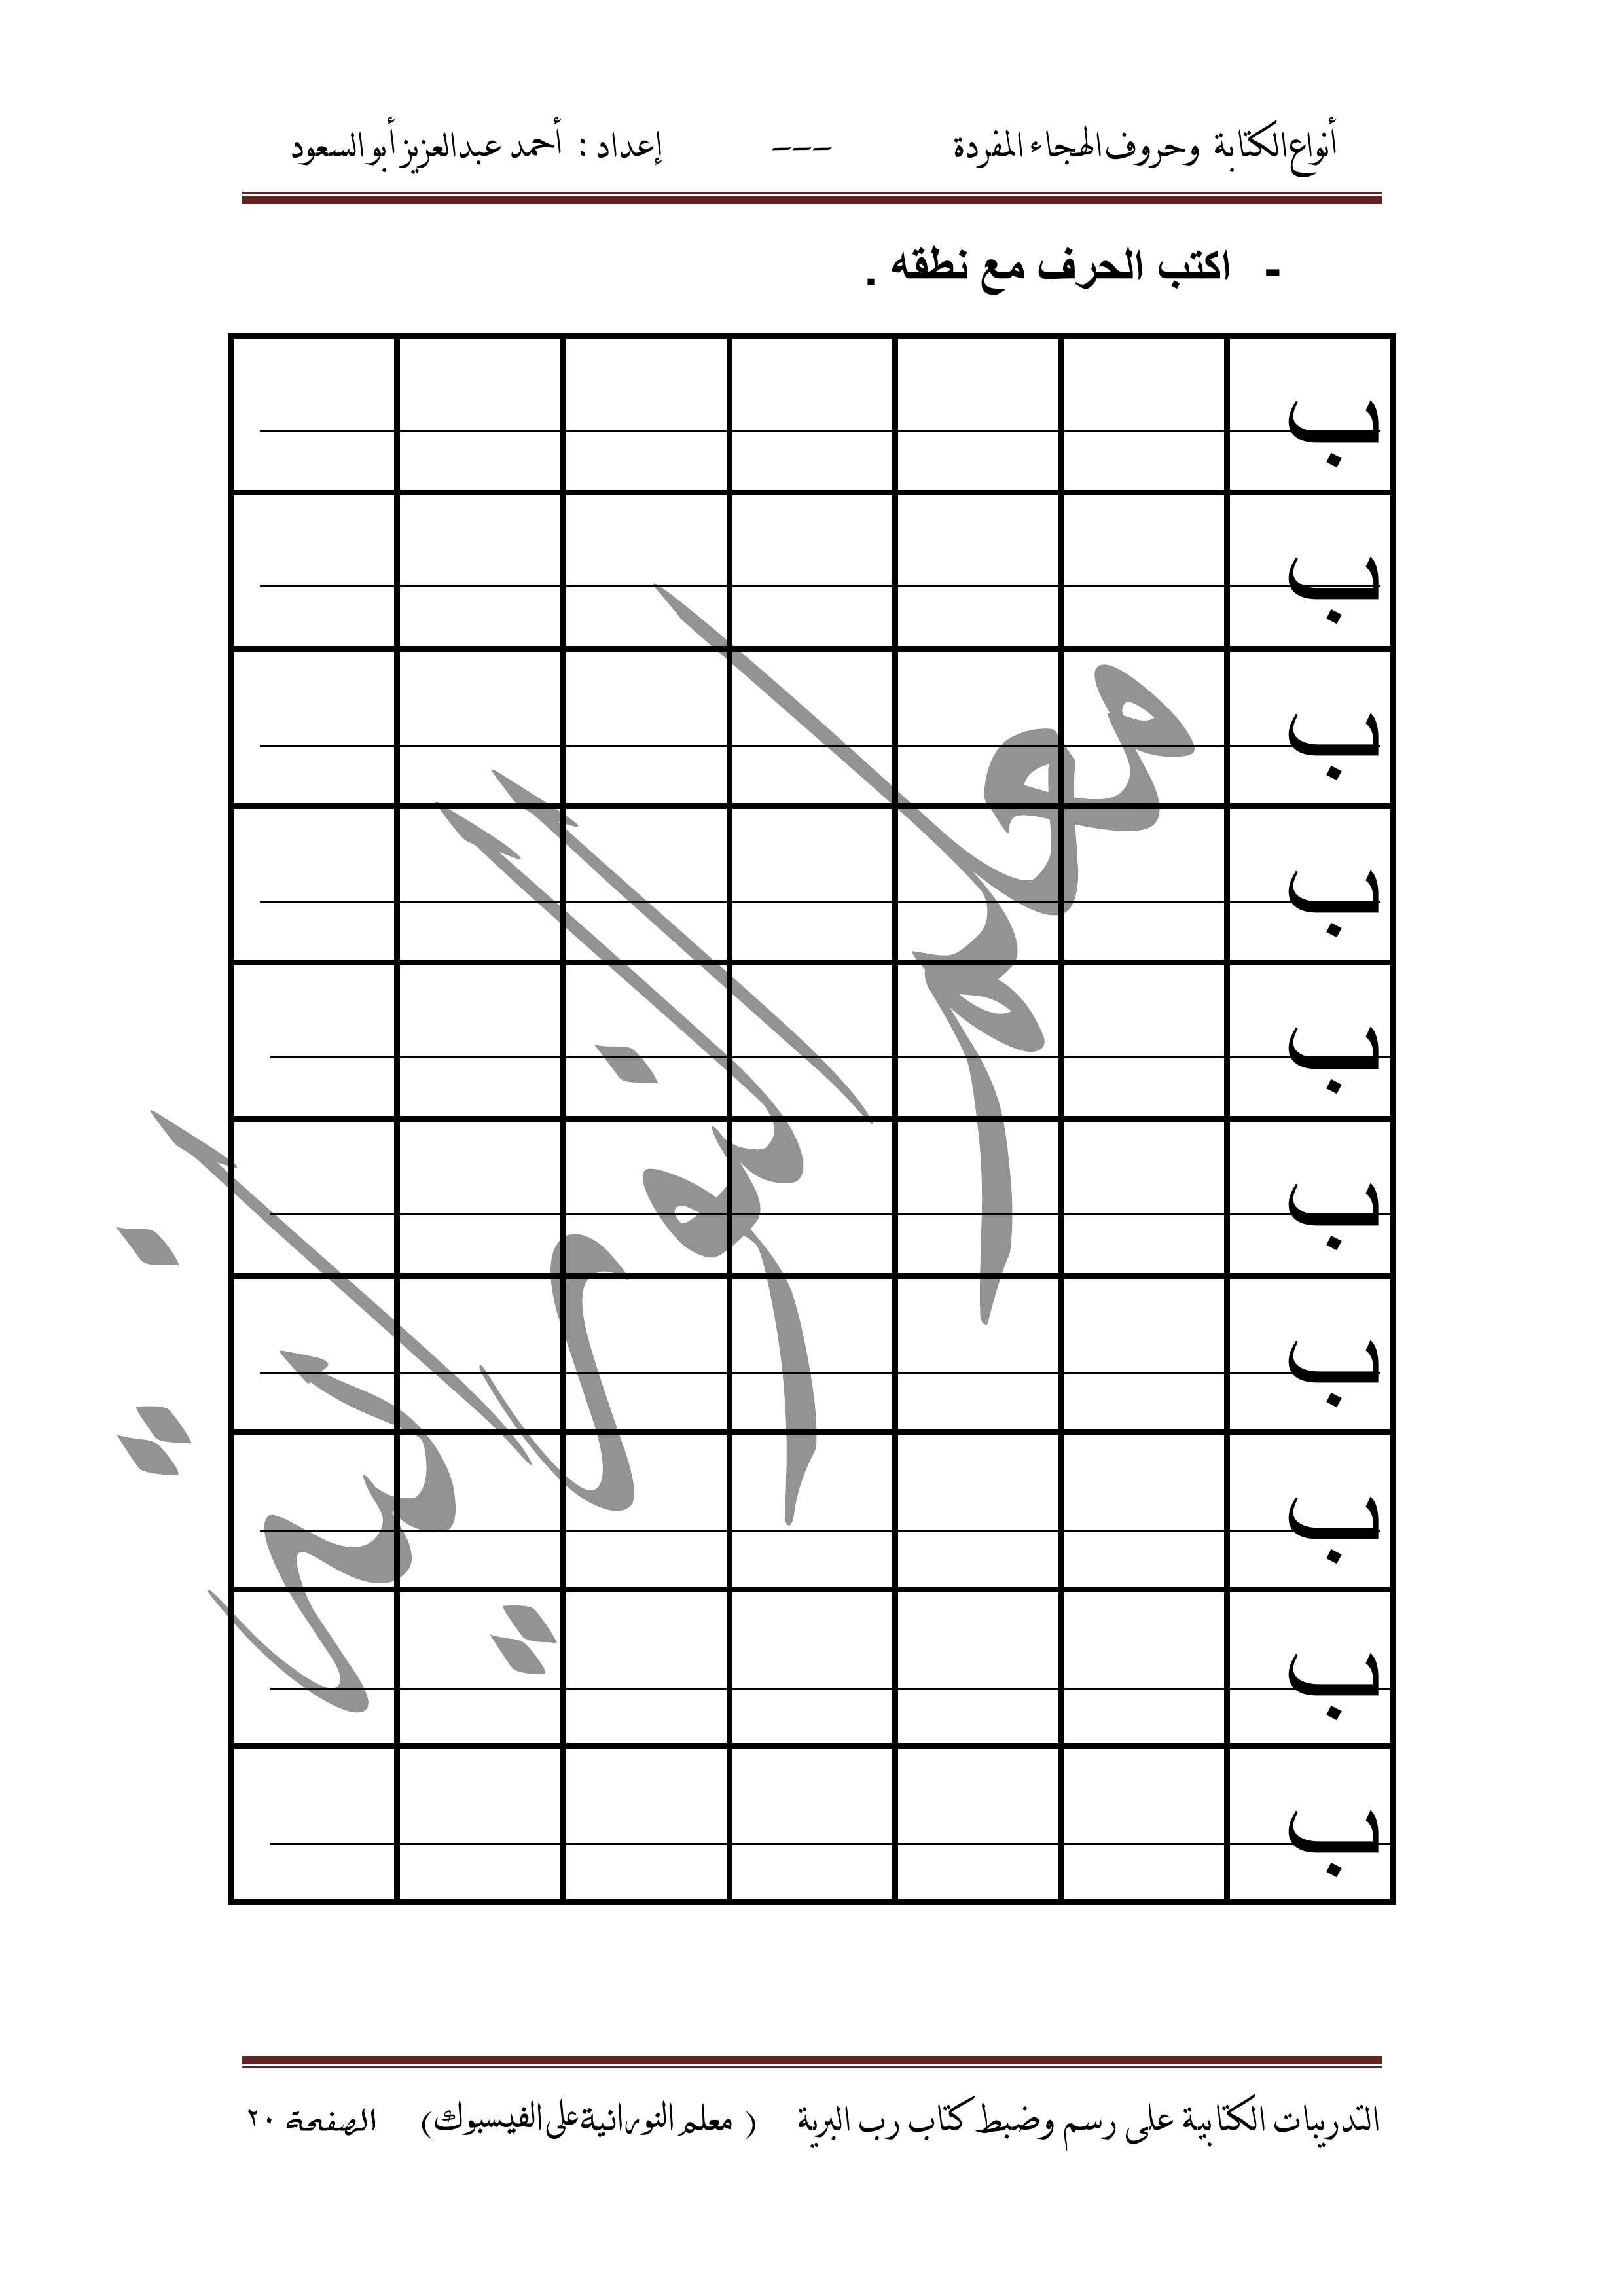 أنواع الكتابة وحروف الهجاء المفردة --- إعداد : أحمد عبدالعزيز أبو السعود
- اكتب الحرف مع نطقه .
ب
ب
ب
ب
ب
ب
ب
ب
ب
ب
معلم النورانية
التدريبات الكتابية على رسم وضبط كتاب رب البرية ( معلم النورانية على الفيسبوك) الصفحة ٢٠